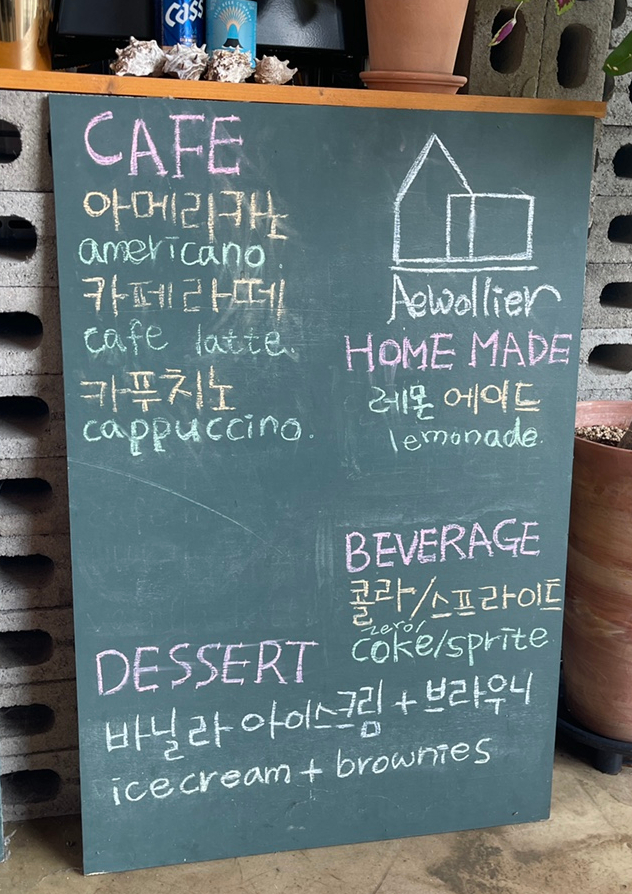 cass
CAFE
아메리카노
americano
카페라떼
cafe latte.
카푸치노
cappuccino.
Aewollier
HOME MADE
레몬에이드
lemonade.
BEVERAGE
콜라/스프라이트
zero/
coke/sprite
DESSERT
바닐라 아이스크림 + 브라우니
icecream + brownies